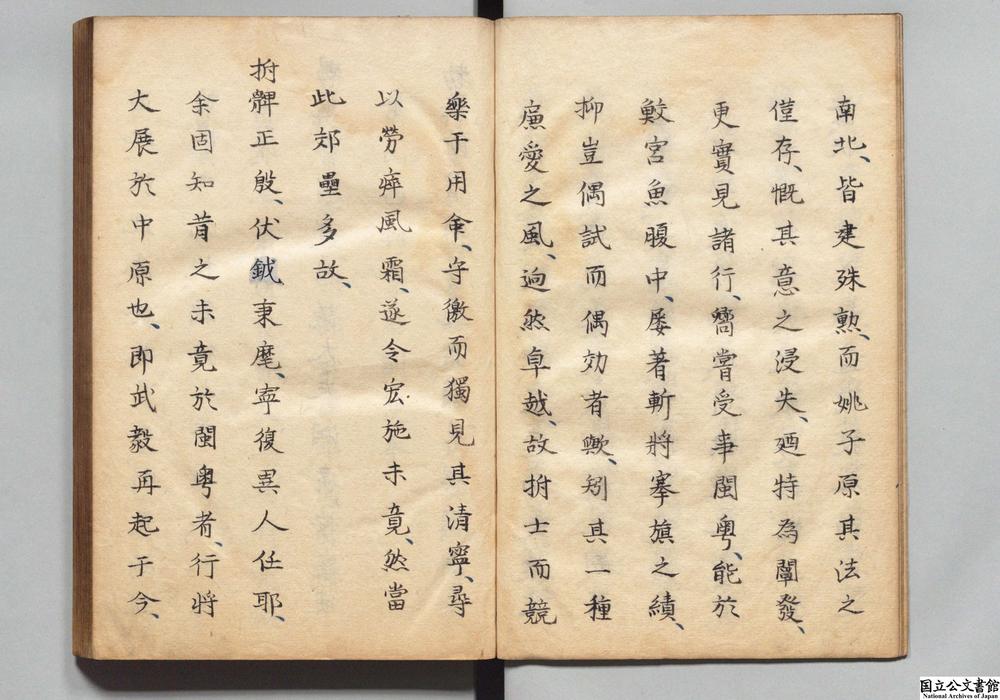 南北、皆建殊勲、而姚子原其法之
僅存、慨其意之浸失、廼特為闡發、
更實見諸行、嚮嘗受事閩粤、能於
鮫宮魚腹中、屡著斬將搴旗之績、
抑豈偶試而偶効者歟、矧其一種
廉愛之風、逈然卓越、故拊士而競
樂干用命、守徼而獨見其清寧、尋
以勞瘁風霜、遂令宏施未竟、然當
此郊壘多故、
拊髀正殷、伏鉞秉麾、寧復異人任耶、
余固知昔之未竟於閩粤者、行將
大展於中原也、即武毅再起于今、
国立公文書館
National Archives of Japan